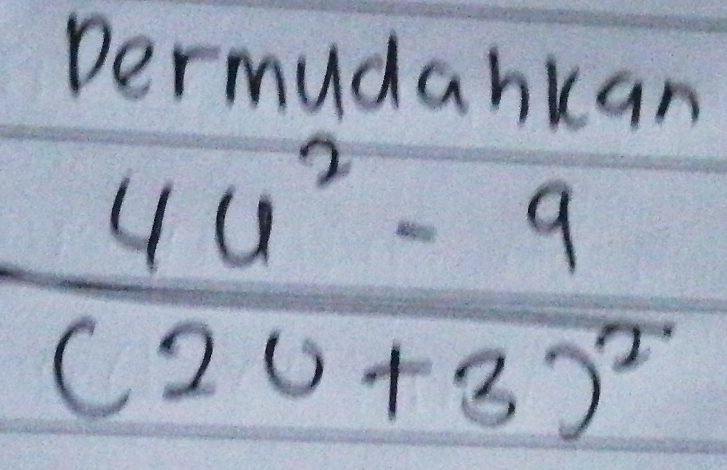 Permudahkan
4u² - 9
(2u + 3)²